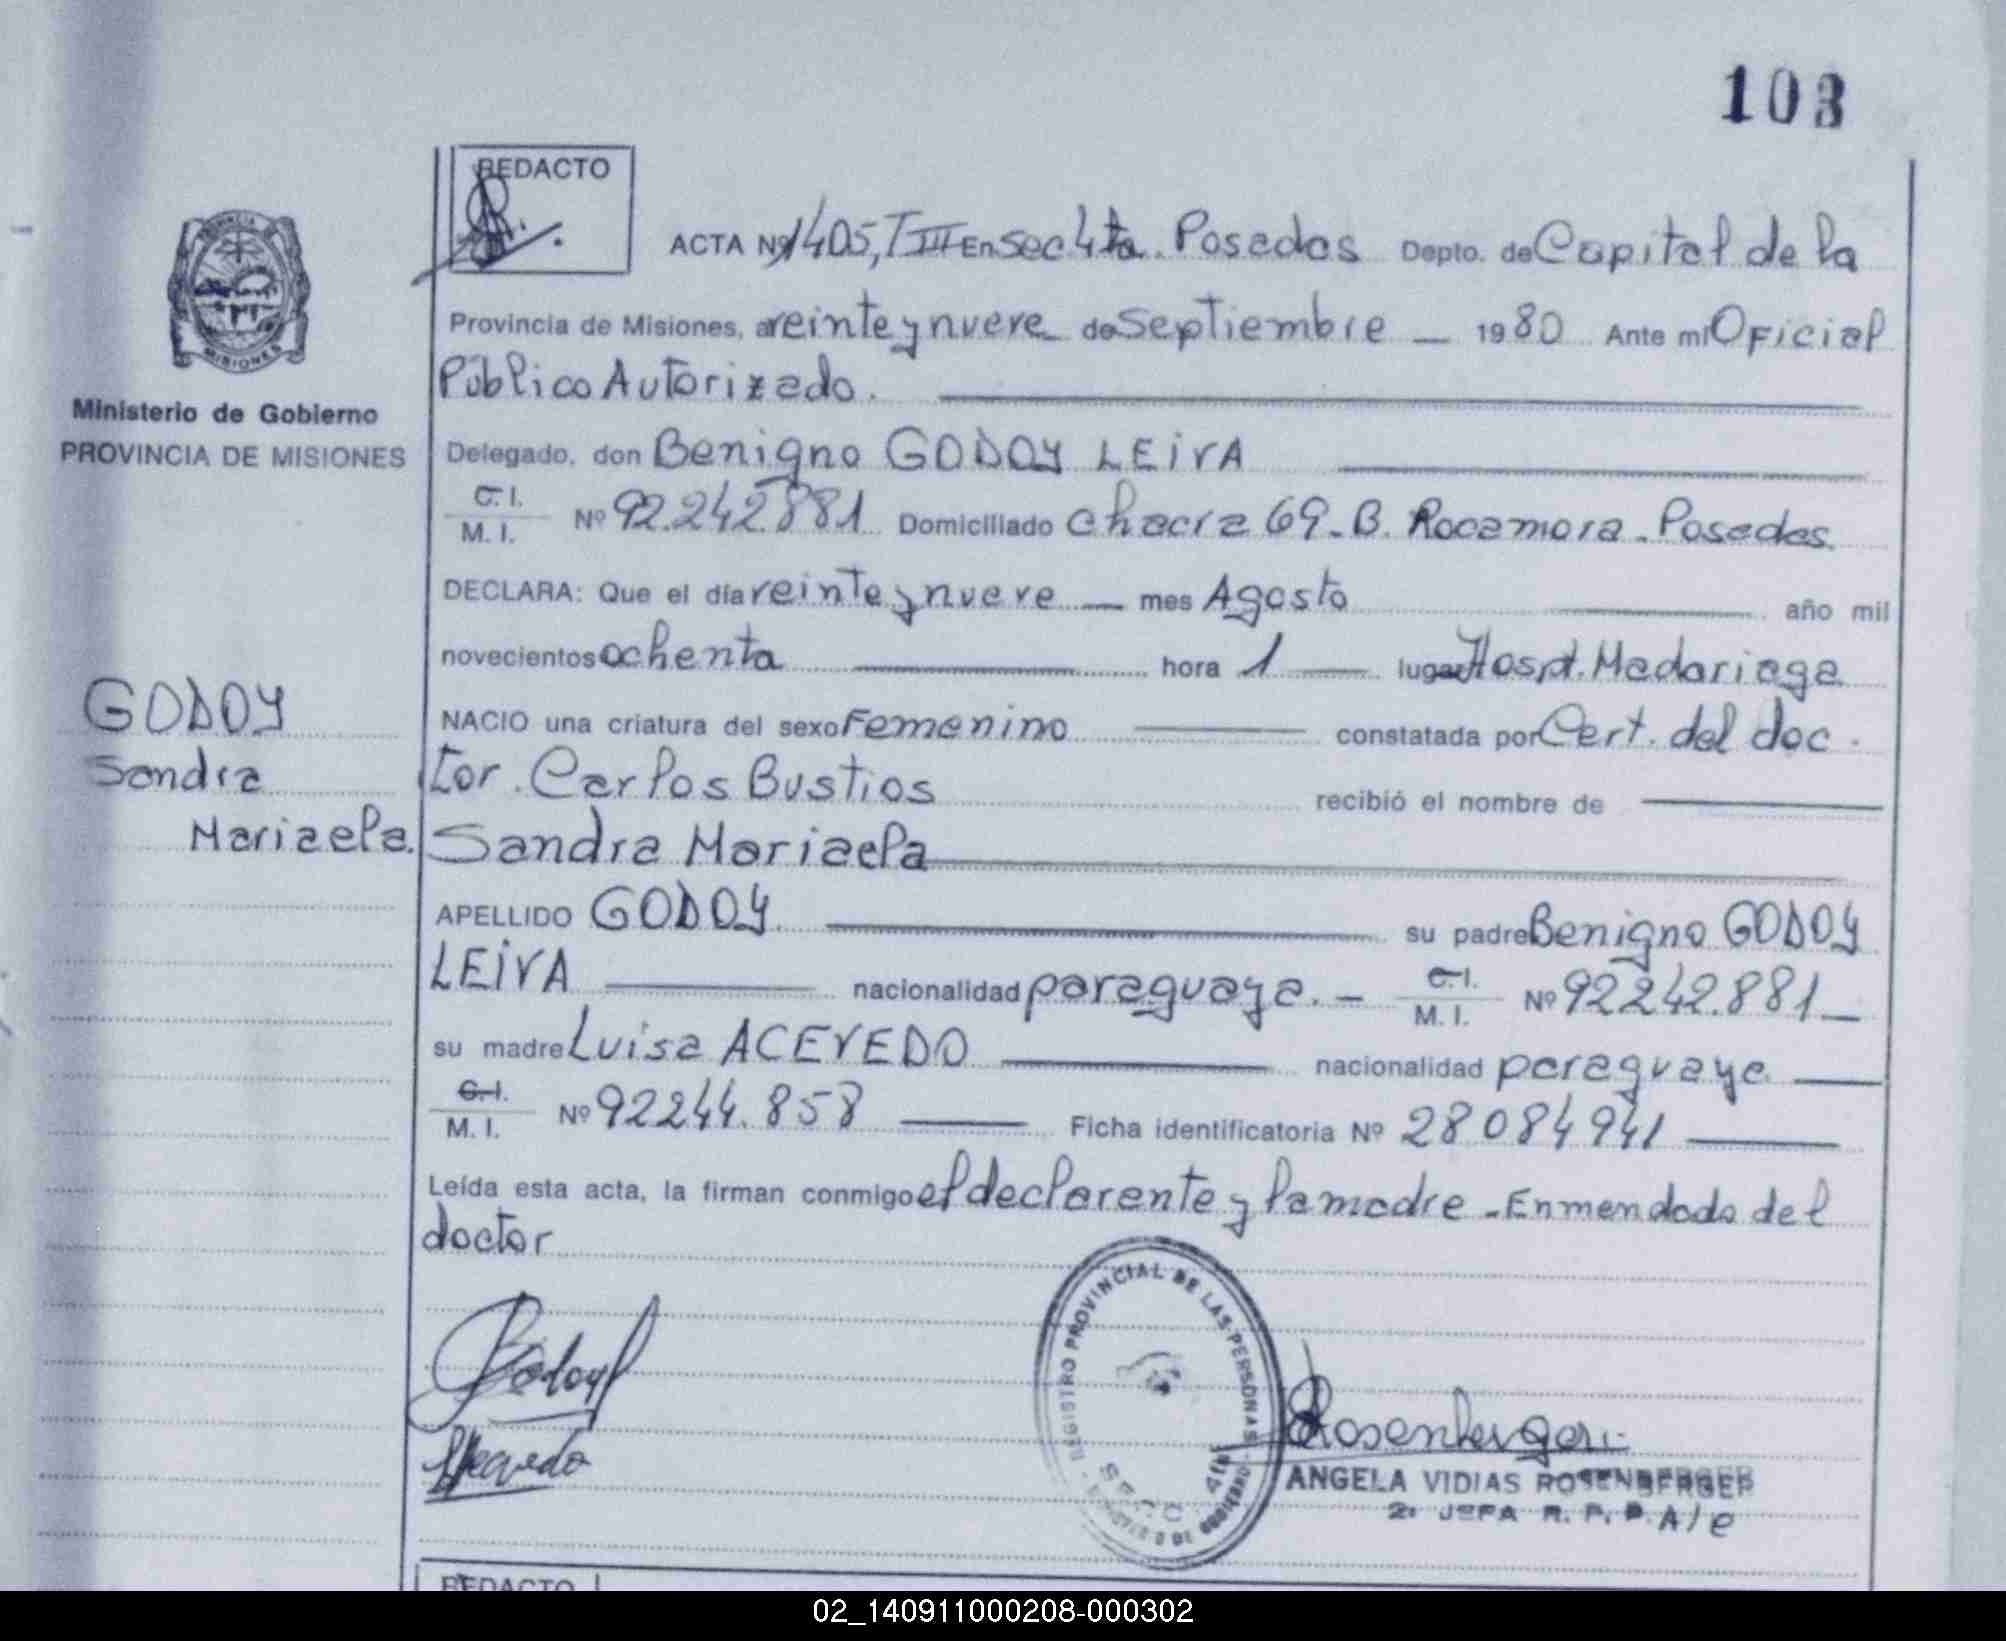 103
REDACTO
ACTA Nº 1405, T III En Sec 4ta. Posadas Depto. de Capital de la
Provincia de Misiones, a veinte y nueve de Septiembre 1980 Ante mí Oficial
Público Autorizado.
Ministerio de Gobierno
PROVINCIA DE MISIONES
Delegado, don Benigno GODOY LEIVA
C.I. M.I. Nº 92.242.881 Domiciliado Chacra 69-B. Rocamora-Posadas
DECLARA: Que el día veinte y nueve mes Agosto año mil
novecientos ochenta hora 1 lugar Hospt. Madariaga
NACIO una criatura del sexo Femenino constatada por Cert. del doc.
tor. Carlos Bustios recibió el nombre de
GODOY
Sandra
Mariaela.
Sandra Mariaela
APELLIDO GODOY su padre Benigno GODOY
LEIVA nacionalidad paraguaya. - C.I. M.I. Nº 92242.881
su madre Luisa ACEVEDO nacionalidad paraguaya
C.I. M.I. Nº 92244.858 Ficha identificatoria Nº 28084941
Leída esta acta, la firman conmigo el declarante y la madre - Enmendado del
doctor
Godoy
Acevedo
REGISTRO PROVINCIAL DE LAS PERSONAS
SECC. 4ta
MISIONES
Rosenberger
ANGELA VIDIAS ROSENBERGER
2ª JEFA R. P. P. A/C
REDACTO
02_140911000208-000302